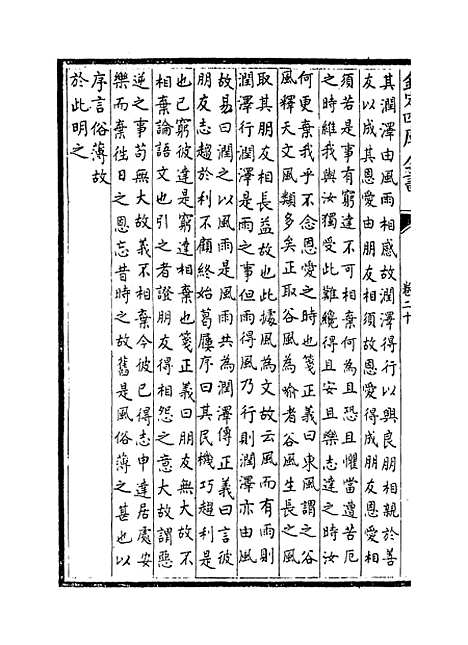 欽定四庫全書
卷二十
其潤澤由風雨相感故潤澤得行以興良朋相親於善
友以成其恩愛由朋友相須故恩愛得成朋友恩愛相
須若是事有窮達不可相棄何為且恐且懼當遭苦厄
之時維我與汝獨受此難纔得且安且樂志達之時汝
何更棄我乎不念恩愛之時也箋正義曰東風謂之谷
風釋天文風類多矣正取谷風為喻者谷風生長之風
取其朋友相長益故也此據風為文故云風而有雨則
潤澤行潤澤是雨之事但雨得風乃行則潤澤亦由風
故易曰潤之以風雨是風雨共為潤澤傳正義曰言彼
朋友志趨於利不顧終始葛屨序曰其民機巧趨利是
也已窮彼達是窮達相棄也箋正義曰朋友無大故不
相棄論語文也引之者證朋友得相怨之意大故謂惡
逆之事苟無大故義不相棄今彼已得志申達居處安
樂而棄徃日之恩忘昔時之故舊是風俗薄之甚也以
序言俗薄故
於此明之